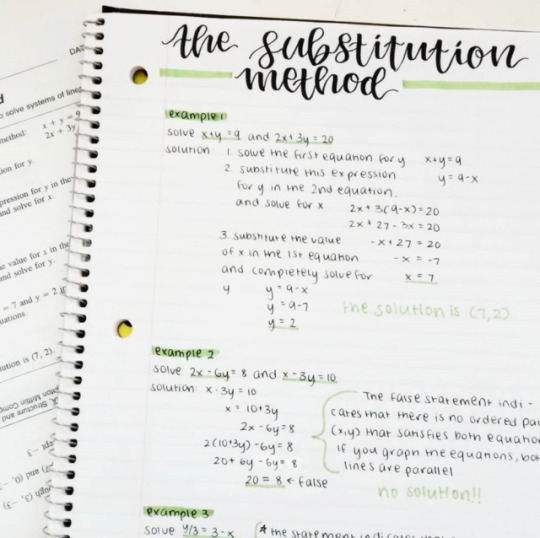 the substitution
method
example 1
solve x+y=9 and 2x+3y=20
solution 1. solve the first equation for y x+y=9
2. substitute this expression y=9-x
for y in the 2nd equation.
and solve for x 2x+3(9-x)=20
2x+27-3x=20
3. substitute the value -x+27=20
of x in the 1st equation -x=-7
and completely solve for x=7
y y=9-x
y=9-7
y=2
the solution is (7,2)
example 2
solve 2x-6y=8 and x-3y=10
solution: x-3y=10
x=10+3y
2x-6y=8
2(10+3y)-6y=8
20+6y-6y=8
20=8 ← false
The false statement indi-
cates that there is no ordered pai
(x,y) that satisfies both equation
If you graph the equations, bot
lines are parallel
no solution!!
example 3
solve y/3=3-x
* the statement indicates that
DAT
to solve systems of linea
method: x + y = 9
2x + 3y
ion for y.
pression for y in the
and solve for x.
value for x in the
and solve for y.
= 7 and y = 2 i
uations.
ution is (7, 2).